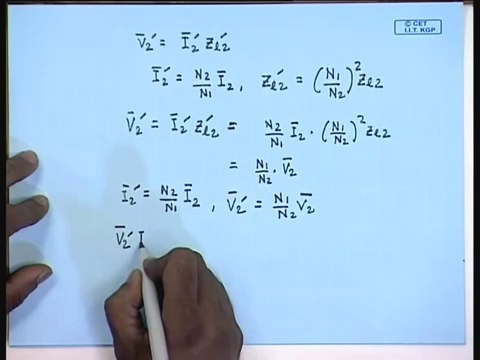 © CET
I.I.T. KGP
V̄₂′ = Ī₂′ Z_{l2}′
Ī₂′ = N₂/N₁ Ī₂ , Z_{l2}′ = (N₁/N₂)² Z_{l2}
V̄₂′ = Ī₂′ Z_{l2}′ = N₂/N₁ Ī₂ · (N₁/N₂)² Z_{l2}
= N₁/N₂ · V̄₂
Ī₂′ = N₂/N₁ Ī₂ , V̄₂′ = N₁/N₂ V̄₂
V̄₂′ I